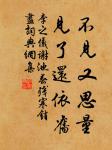 不見又思量
見了還依舊
李之儀謝池春殘寒銷
盡詞典網集